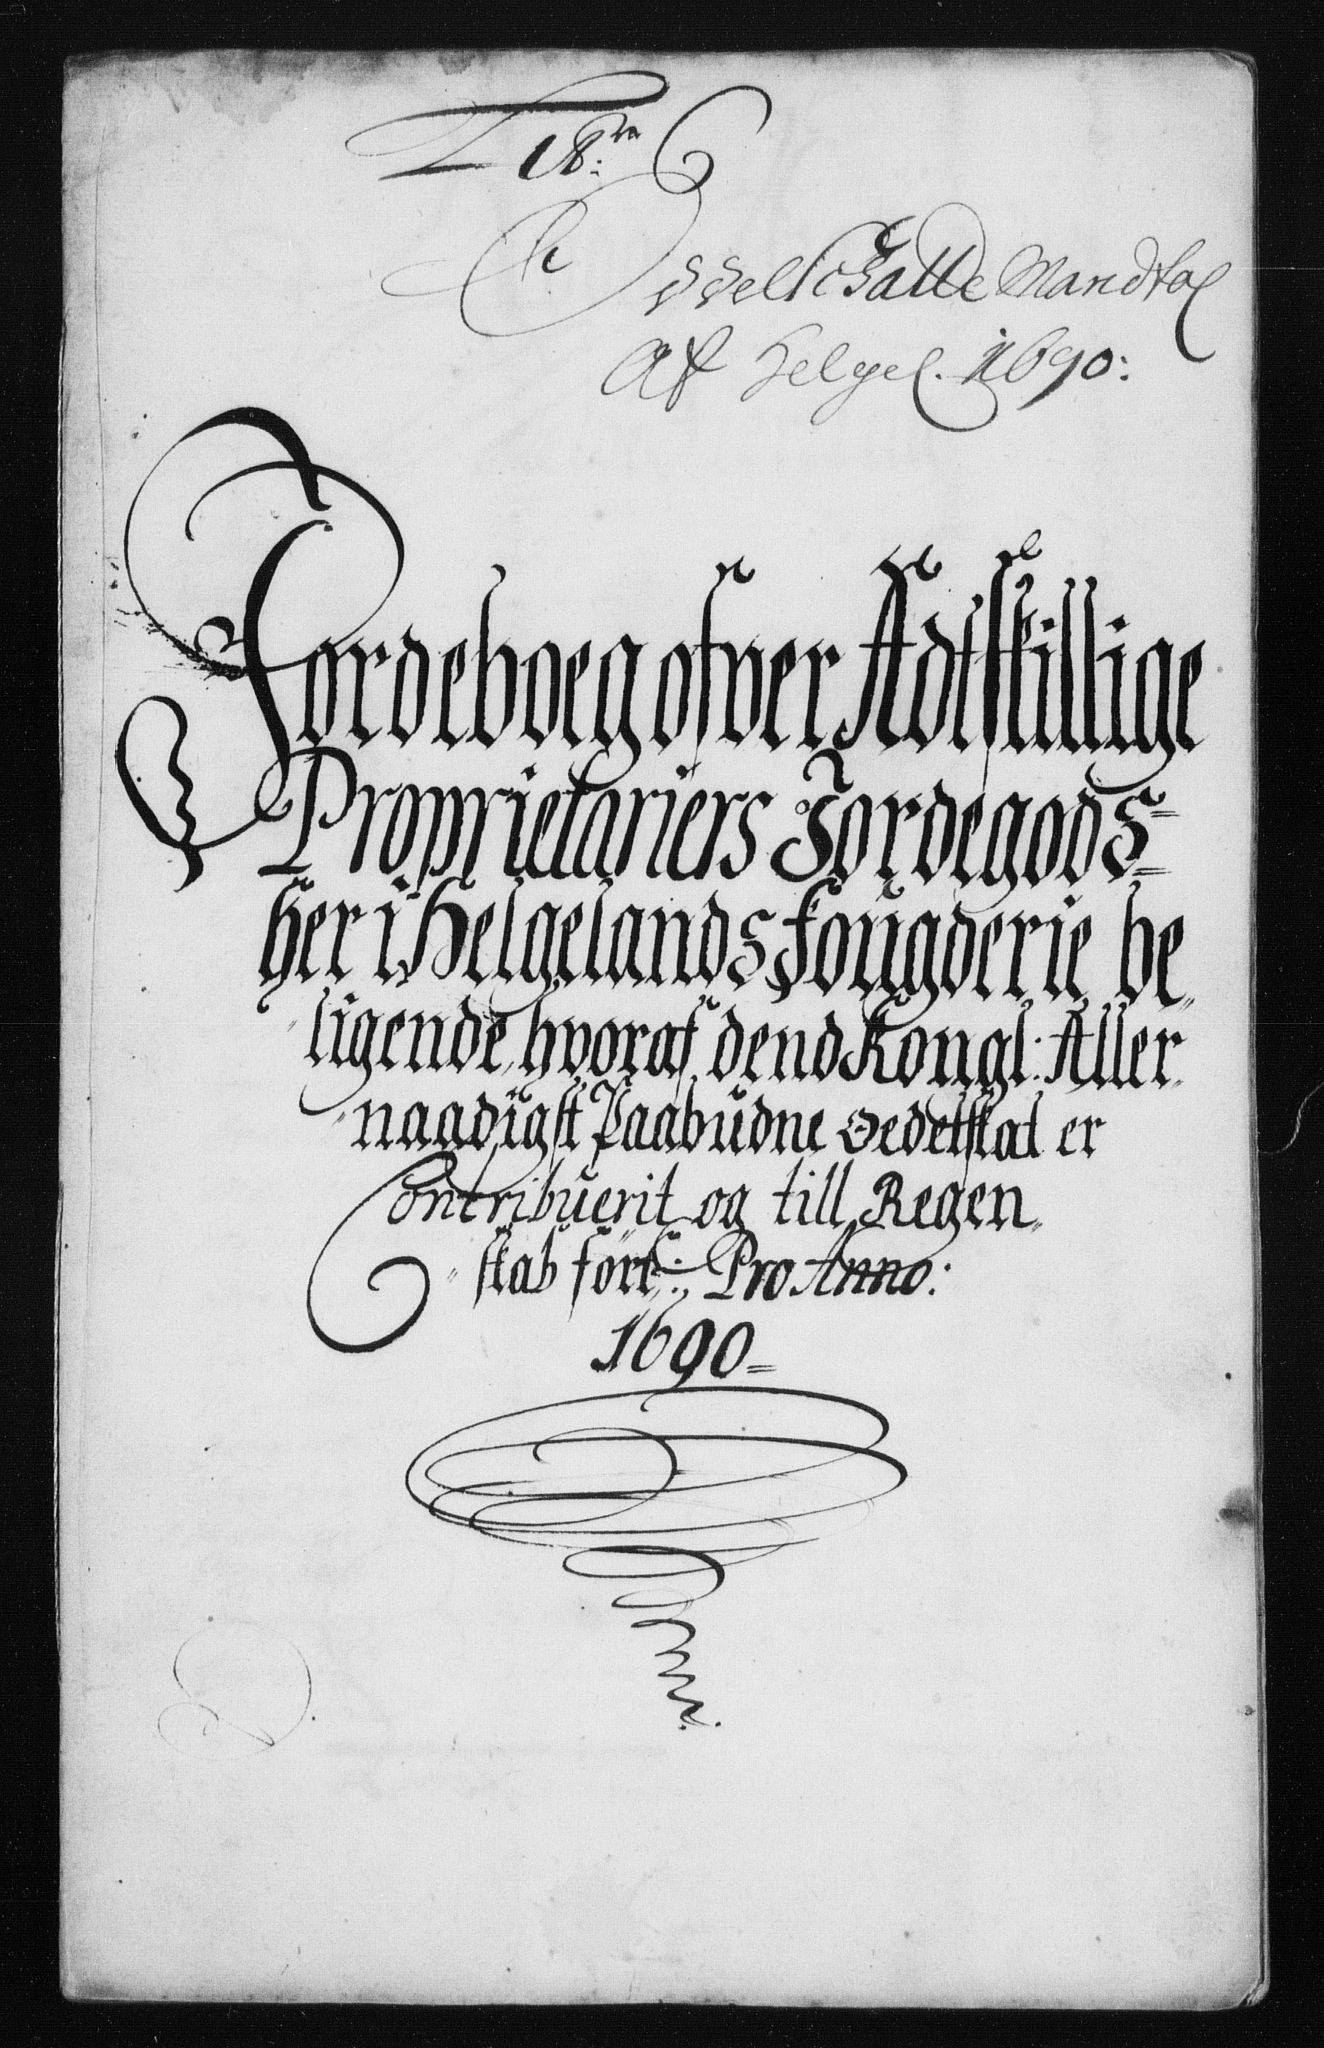 6
Oddelschatte Mandtal
Af Helgel. 1690:
Jordeboeg ofver Adtskillige
Proprietariers Jordegods=
her i Helgelands fougderie be„
„ligende, hvoraf dend Kongl: Aller„
„naadigst Paabudne Oedelskat er
Contribuerit og till Regen„
„skab fört:, Pro Anno:
1690=